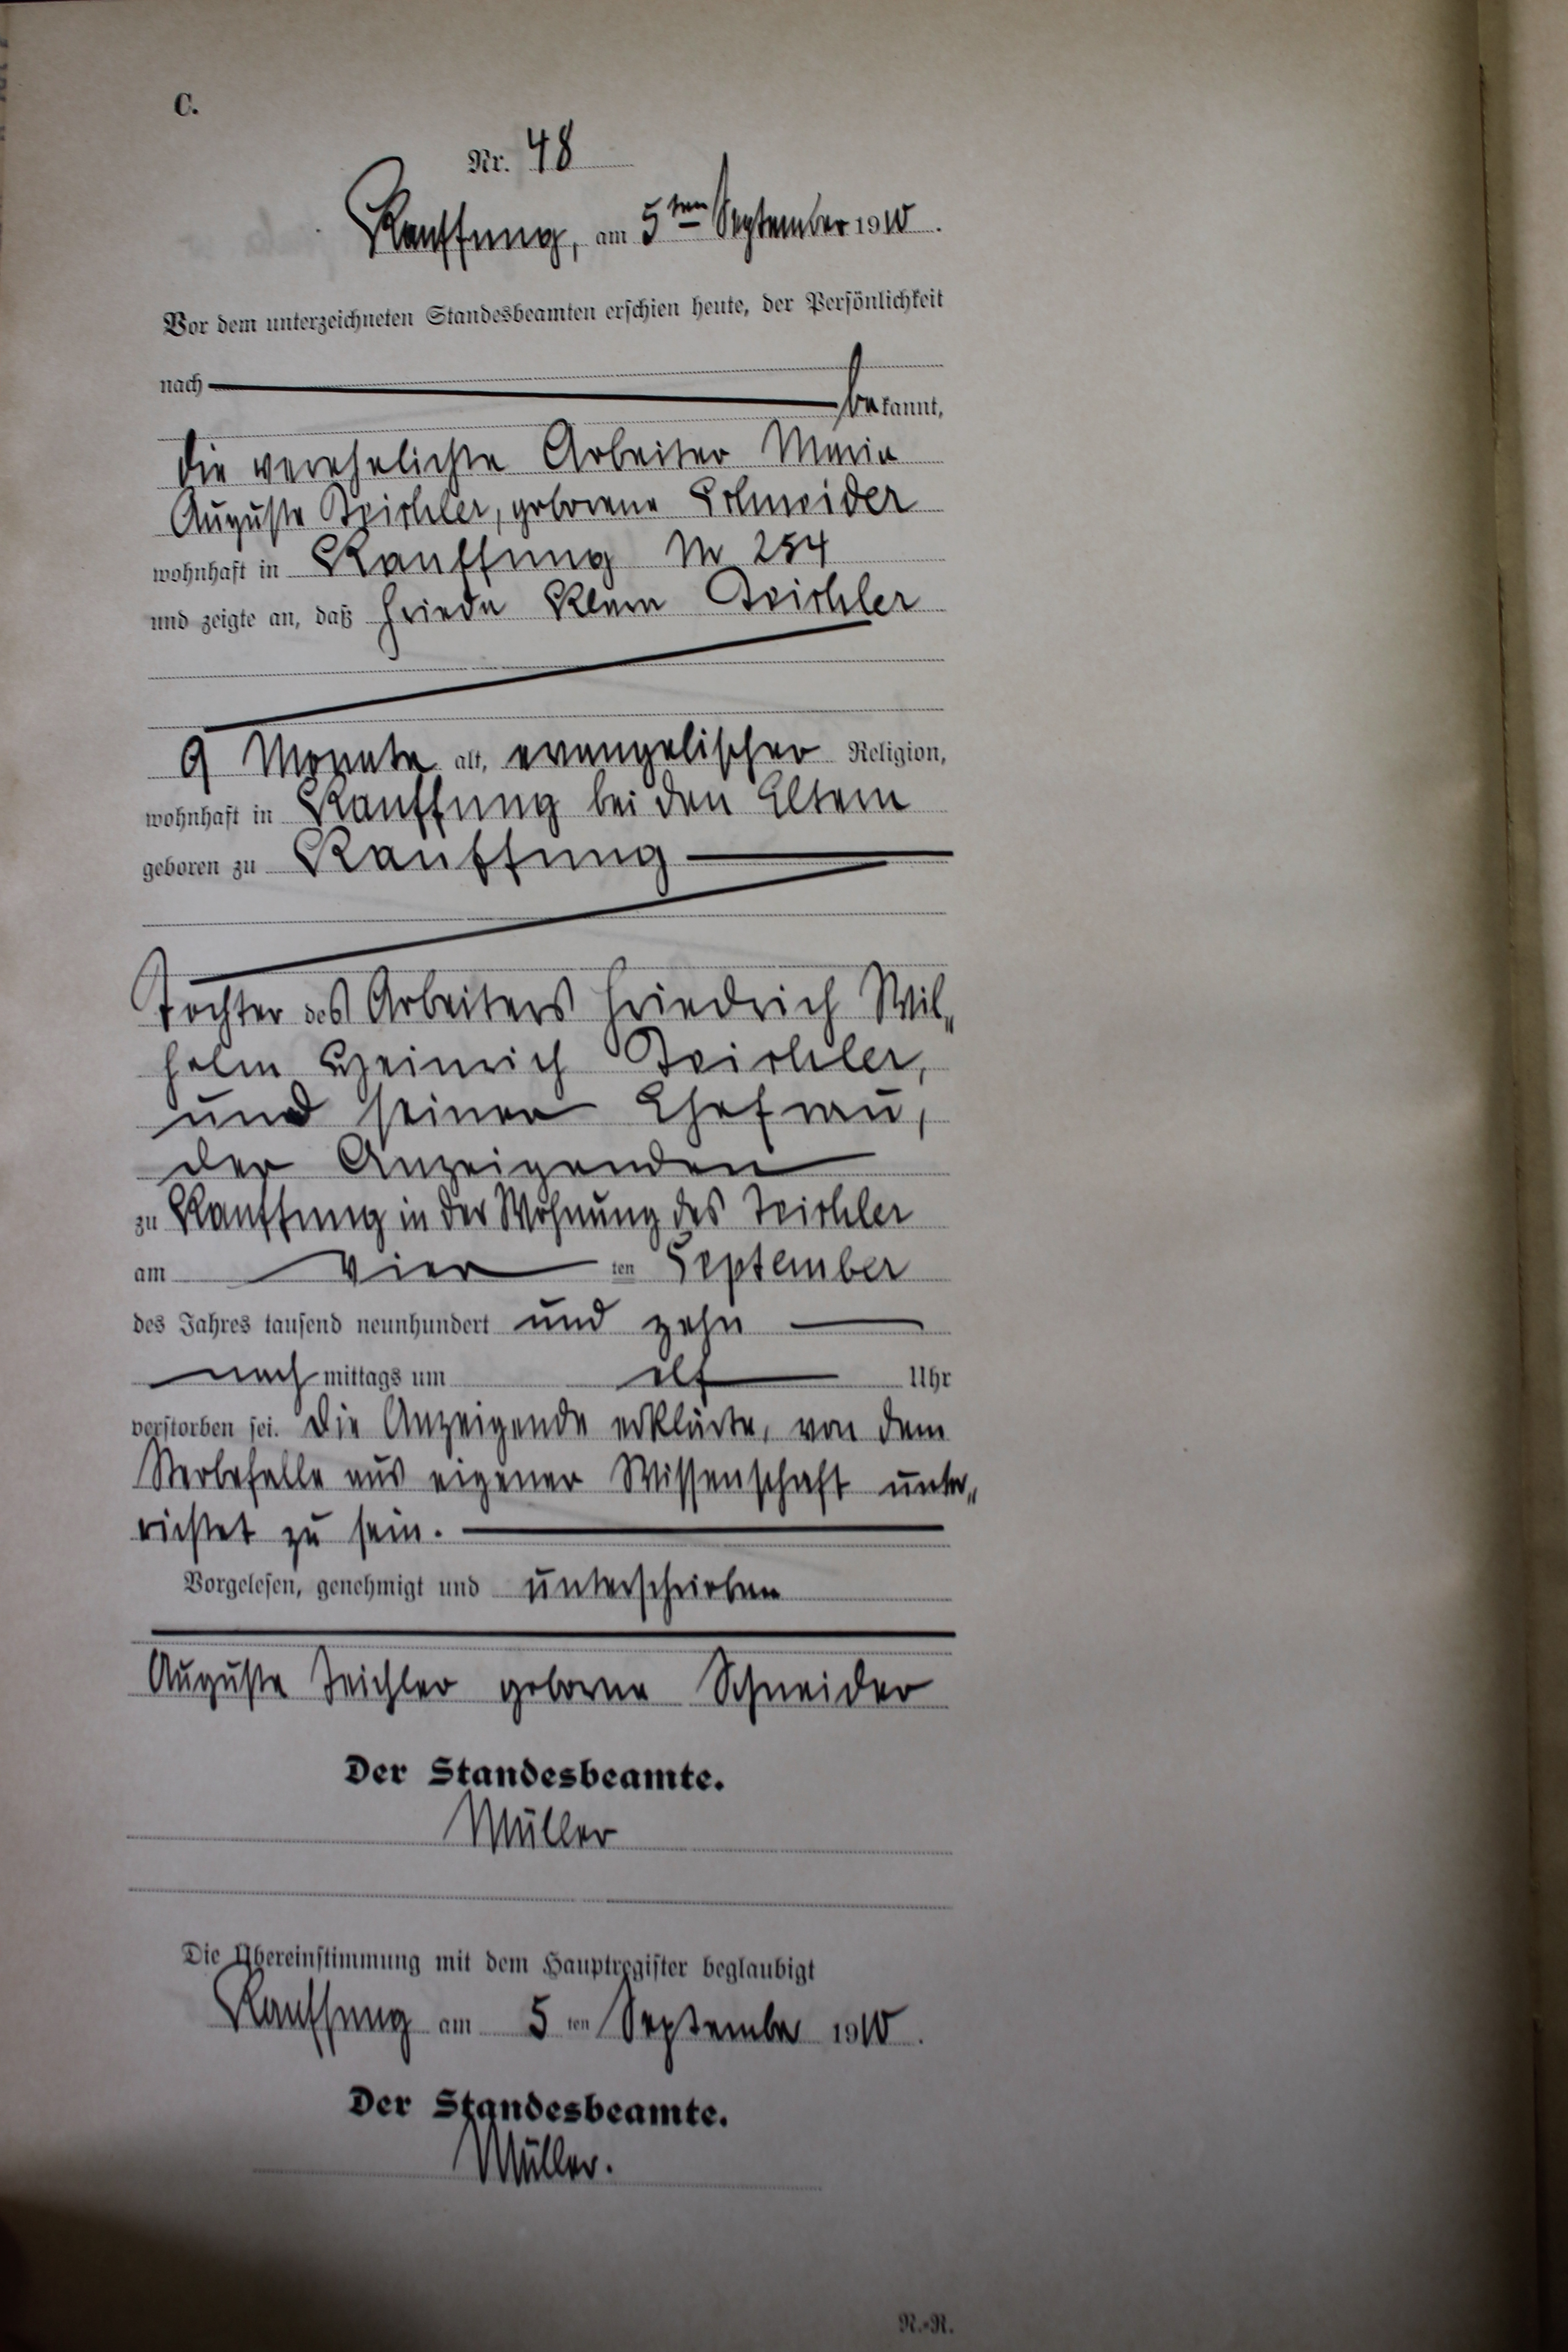 C.
Nr. 48
Kauffung, am 5ten September 1910.
Vor dem unterzeichneten Standesbeamten erschien heute, der Persönlichkeit
nach bekannt,
die verehelichte Arbeiter Maria
Auguste Teichler, geborene Schneider
wohnhaft in Kauffung Nr 254
und zeigte an, daß Frieda Klara Teichler
9 Monate alt, evangelischer Religion,
wohnhaft in Kauffung bei den Eltern
geboren zu Kauffung
Tochter des Arbeiters Friedrich Wil„
helm Heinrich Teichler,
und seiner Ehefrau,
der Anzeigenden
zu Kauffung in der Wohnung des Teichler
am vier ten September
des Jahres tausend neunhundert und zehn
nach mittags um elf Uhr
verstorben sei. Die Anzeigende erklärte, von dem
Sterbefalle aus eigener Wissenschaft unter„
richtet zu sein.
Vorgelesen, genehmigt und unterschrieben
Auguste Teichler geborne Schneider
Der Standesbeamte.
Müller
Die Übereinstimmung mit dem Hauptregister beglaubigt
Kauffung am 5 ten September 1910.
Der Standesbeamte.
Müller.
N.-N.